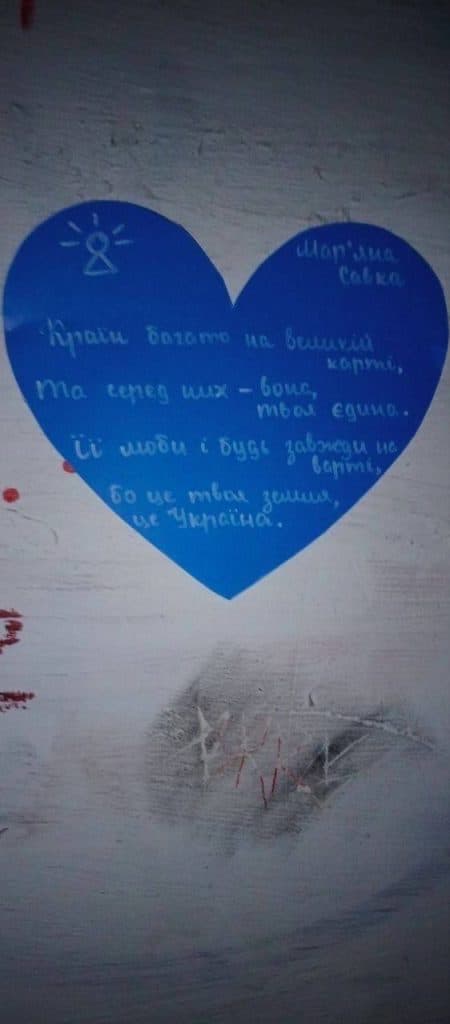 Мар'яна
Савка
Країн багато на великій
карті,
Та серед них – вона,
твоя єдина.
Її люби і будь завжди на
варті,
бо це твоя земля,
це Україна.